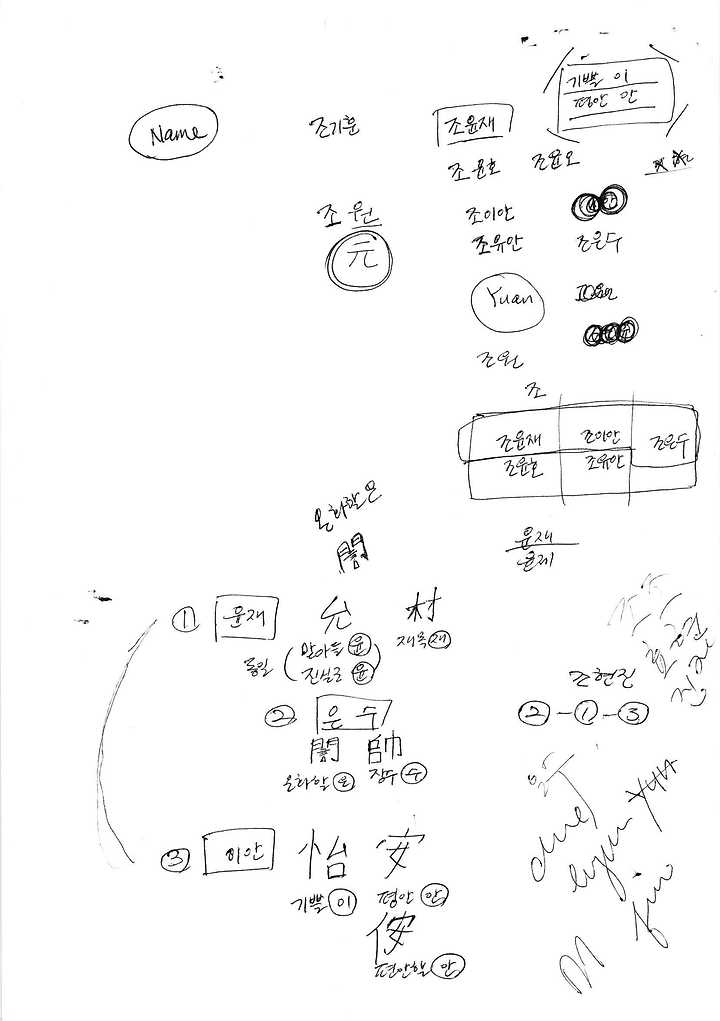 기쁠 이
평안 안
Name 조기훈 조윤재
조윤호 조윤오
조원 조이안
元 조유안 조은수
Yuan
조원
조
조윤재 조이안 조은수
조윤호 조유안
온화할 은
誾
윤재
윤제
① 윤재 允 材
동일 (맏아들 윤 재목 재
진실로 윤)
조현진
② 은수 ②-①-③
誾 帥
온화할 은 장수 수
③ 이안 怡 安
기쁠 이 평안 안
侒
편안할 안